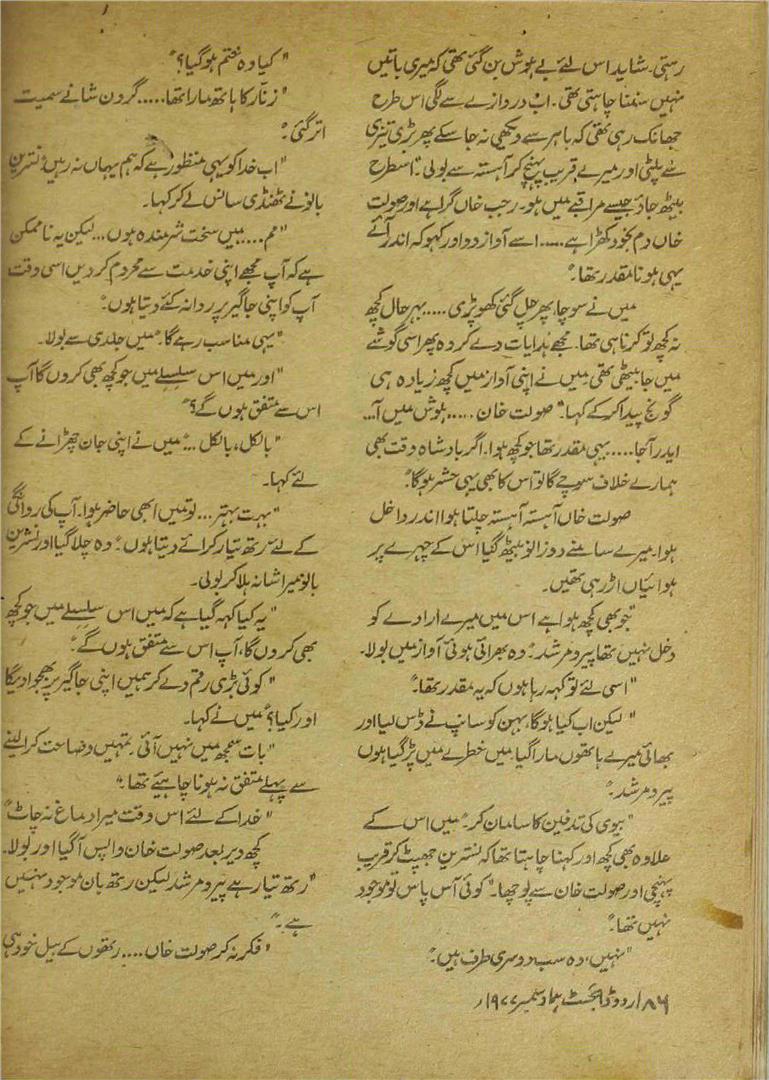 رہتی۔ شاید اس لئے بے ہوش بن گئی تھی کہ میری باتیں
نہیں سننا چاہتی تھی۔ اب دروازے سے لگی اس طرح
جھانک رہی تھی کہ باہر سے دیکھی نہ جا سکے پھر بڑی تیزی
سے پلٹی اور میرے قریب پہنچ کر آہستہ سے بولی۔ "اس طرح
بیٹھ جاؤ جیسے مراقبے میں ہو۔ رجب خاں گرا ہے اور صولت
خاں دم بخود کھڑا ہے..... اسے آواز دو اور کہو کہ اندر آئے
یہی ہونا مقدر تھا۔"
میں نے سوچا پھر چل گئی کھوپڑی..... بہر حال کچھ
نہ کچھ تو کرنا ہی تھا۔ مجھے ہدایات دے کر وہ پھر اسی گوشے
میں جا بیٹھی تھی میں نے اپنی آواز میں کچھ زیادہ ہی
گونج پیدا کر کے کہا۔ "صولت خان ..... ہوش میں آ...
ایدر آ جا.... یہی مقدر تھا جو کچھ ہوا۔ اگر بادشاہ وقت بھی
ہمارے خلاف سوچے گا تو اس کا بھی یہی حشر ہو گا۔"
صولت خاں آہستہ آہستہ چلتا ہوا اندر داخل
ہوا۔ میرے سامنے دو زانو بیٹھ گیا اس کے چہرے پر
ہوائیاں اڑ رہی تھیں۔
"جو بھی کچھ ہوا ہے اس میں میرے ارادے کو
دخل نہیں تھا پیر و مرشد۔" وہ بھرائی ہوئی آواز میں بولا۔
"اسی لئے تو کہہ رہا ہوں کہ یہ مقدر تھا۔"
"لیکن اب کیا ہو گا، بہن کو سانپ نے ڈس لیا اور
بھائی میرے ہاتھوں مارا گیا۔ میں خطرے میں پڑ گیا ہوں
پیر و مرشد۔"
"بیوی کی تدفین کا سامان کر۔" میں اس کے
علاوہ بھی کچھ اور کہنا چاہتا تھا کہ نسترین جھپٹ کر قریب
پہنچی اور صولت خان سے پوچھا۔ "کوئی آس پاس تو موجود
نہیں تھا۔"
"نہیں، وہ سب دوسری طرف ہیں۔"
"کیا وہ ختم ہو گیا؟"
"زنّار کا ہاتھ مارا تھا..... گردن شانے سمیت
اتر گئی۔"
"اب خدا کو یہی منظور ہے کہ ہم یہاں نہ رہیں۔" نسترین
بانو نے ٹھنڈی سانس لے کر کہا۔
"مم.... میں سخت شرمندہ ہوں... لیکن یہ ناممکن
ہے کہ آپ مجھے اپنی خدمت سے محروم کر دیں اسی وقت
آپ کو اپنی جاگیر پر روانہ کئے دیتا ہوں۔"
"یہی مناسب رہے گا۔" میں جلدی سے بولا۔
"اور میں اس سلسلے میں جو کچھ بھی کروں گا آپ
اس سے متفق ہوں گے؟"
"بالکل، بالکل ..." میں نے اپنی جان چھڑانے کے
لئے کہا۔
"بہت بہتر ... تو میں ابھی حاضر ہوا۔ آپ کی روانگی
کے لئے رتھ تیار کرائے دیتا ہوں۔" وہ چلا گیا اور نسترین
بانو میرا شانہ ہلا کر بولی۔
"یہ کیا کہہ گیا ہے کہ میں اس سلسلے میں جو کچھ
بھی کروں گا، آپ اس سے متفق ہوں گے۔"
"کوئی بڑی رقم دے کر ہمیں اپنی جاگیر پر بھجوا دیگا
اور کیا؟" میں نے کہا۔
"بات سمجھ میں نہیں آئی۔ تمہیں وضاحت کرا لینے
سے پہلے متفق نہ ہونا چاہیئے تھا۔"
"خدا کے لئے اس وقت میرا دماغ نہ چاٹ"
کچھ دیر بعد صولت خان واپس آ گیا اور بولا۔
"رتھ تیار ہے پیر و مرشد لیکن رتھ بان موجود نہیں
ہے۔"
"فکر نہ کر صولت خاں .... رتھوں کے بیل خود ہی
۸۶ اردو ڈائجسٹ ہما، دسمبر ۱۹۷۷ء